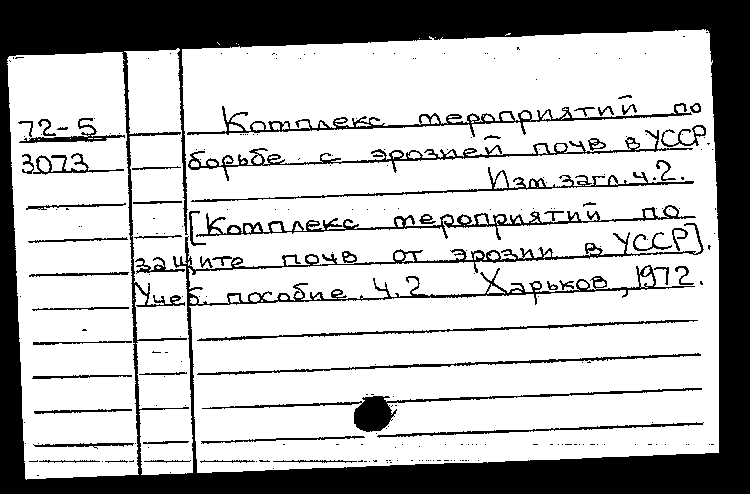 72-5 Комплекс мероприятий по
3073 борьбе с эрозией почв в УССР.
Изм. загл. ч. 2.
[Комплекс мероприятий по
защите почв от эрозии в УССР].
Учеб. пособие. Ч. 2 Харьков, 1972.